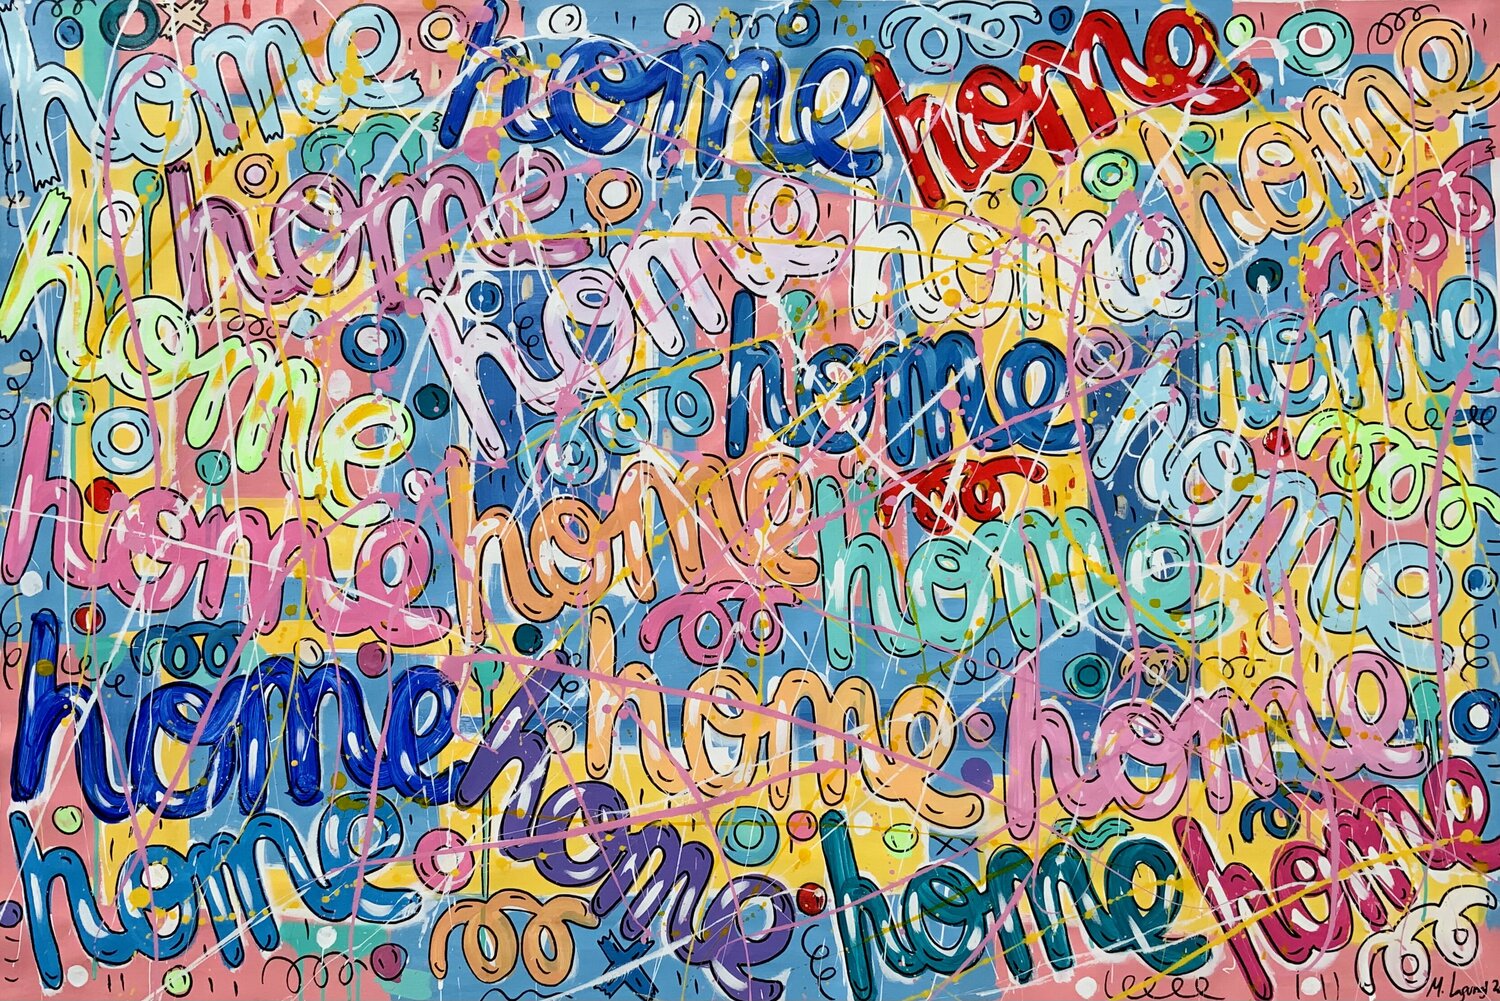 home home home home
home home home
home home home
home home home home
home home home
home home home home
M.